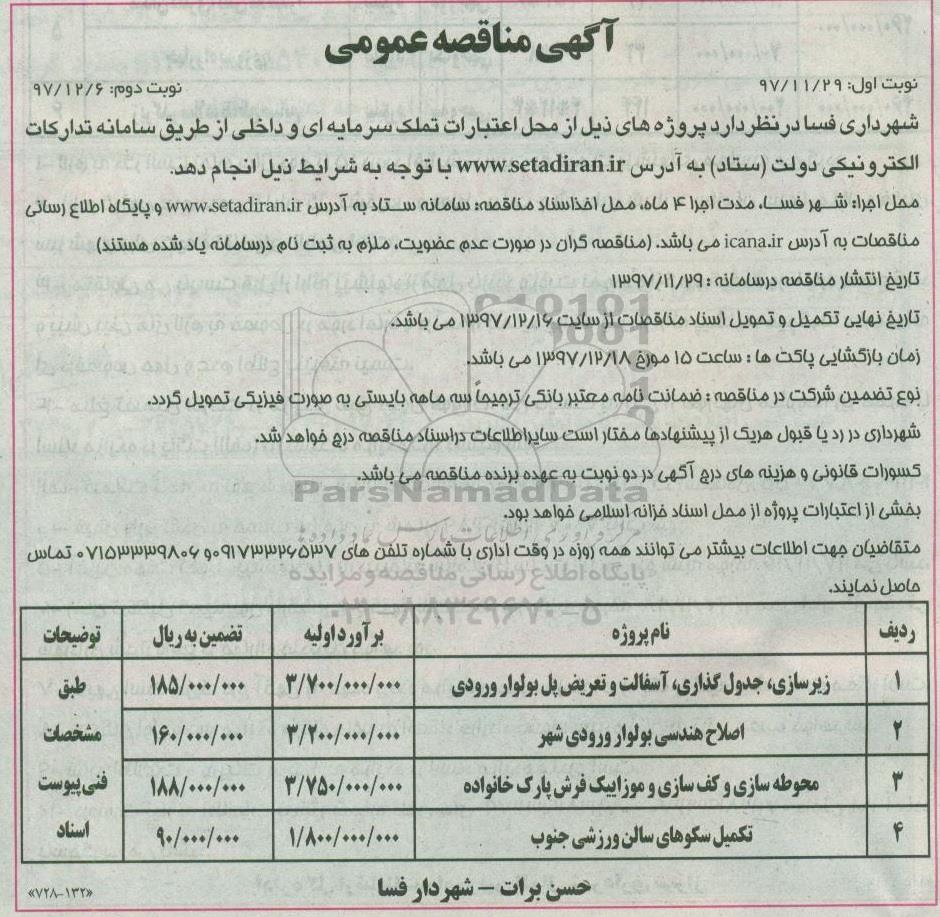 آگهی مناقصه عمومی
نوبت اول: ۹۷/۱۱/۲۹
نوبت دوم: ۹۷/۱۲/۶
شهرداری فسا در نظر دارد پروژه های ذیل از محل اعتبارات تملک سرمایه ای و داخلی از طریق سامانه تدارکات
الکترونیکی دولت (ستاد) به آدرس www.setadiran.ir با توجه به شرایط ذیل انجام دهد.
محل اجرا: شهر فسا، مدت اجرا ۴ ماه، محل اخذ اسناد مناقصه: سامانه ستاد به آدرس www.setadiran.ir و پایگاه اطلاع رسانی
مناقصات به آدرس icana.ir می باشد. (مناقصه گران در صورت عدم عضویت، ملزم به ثبت نام درسامانه یاد شده هستند)
تاریخ انتشار مناقصه درسامانه : ۱۳۹۷/۱۱/۲۹
تاریخ نهایی تکمیل و تحویل اسناد مناقصات از سایت ۱۳۹۷/۱۲/۱۶ می باشد.
زمان بازگشایی پاکت ها : ساعت ۱۵ مورخ ۱۳۹۷/۱۲/۱۸ می باشد.
نوع تضمین شرکت در مناقصه : ضمانت نامه معتبر بانکی ترجیحاً سه ماهه بایستی به صورت فیزیکی تحویل گردد.
شهرداری در رد یا قبول هریک از پیشنهادها مختار است سایر اطلاعات در اسناد مناقصه درج خواهد شد.
کسورات قانونی و هزینه های درج آگهی در دو نوبت به عهده برنده مناقصه می باشد.
بخشی از اعتبارات پروژه از محل اسناد خزانه اسلامی خواهد بود.
متقاضیان جهت اطلاعات بیشتر می توانند همه روزه در وقت اداری با شماره تلفن های ۰۹۱۷۳۳۲۶۵۳۷ و ۰۷۱۵۳۳۳۹۸۰۶ تماس
حاصل نمایند.
ردیف نام پروژه برآورد اولیه تضمین به ریال توضیحات
۱ زیرسازی، جدول گذاری، آسفالت و تعریض پل بولوار ورودی ۳/۷۰۰/۰۰۰/۰۰۰ ۱۸۵/۰۰۰/۰۰۰ طبق
۲ اصلاح هندسی بولوار ورودی شهر ۳/۲۰۰/۰۰۰/۰۰۰ ۱۶۰/۰۰۰/۰۰۰ مشخصات
۳ محوطه سازی و کف سازی و موزاییک فرش پارک خانواده ۳/۷۵۰/۰۰۰/۰۰۰ ۱۸۸/۰۰۰/۰۰۰ فنی پیوست
۴ تکمیل سکوهای سالن ورزشی جنوب ۱/۸۰۰/۰۰۰/۰۰۰ ۹۰/۰۰۰/۰۰۰ اسناد
حسن برات - شهردار فسا
«۷۲۸-۱۳۲»
ParsNamadData
پایگاه اطلاع رسانی مناقصه و مزایده
۰۲۱-۸۸۳۴۹۶۷۰-۵